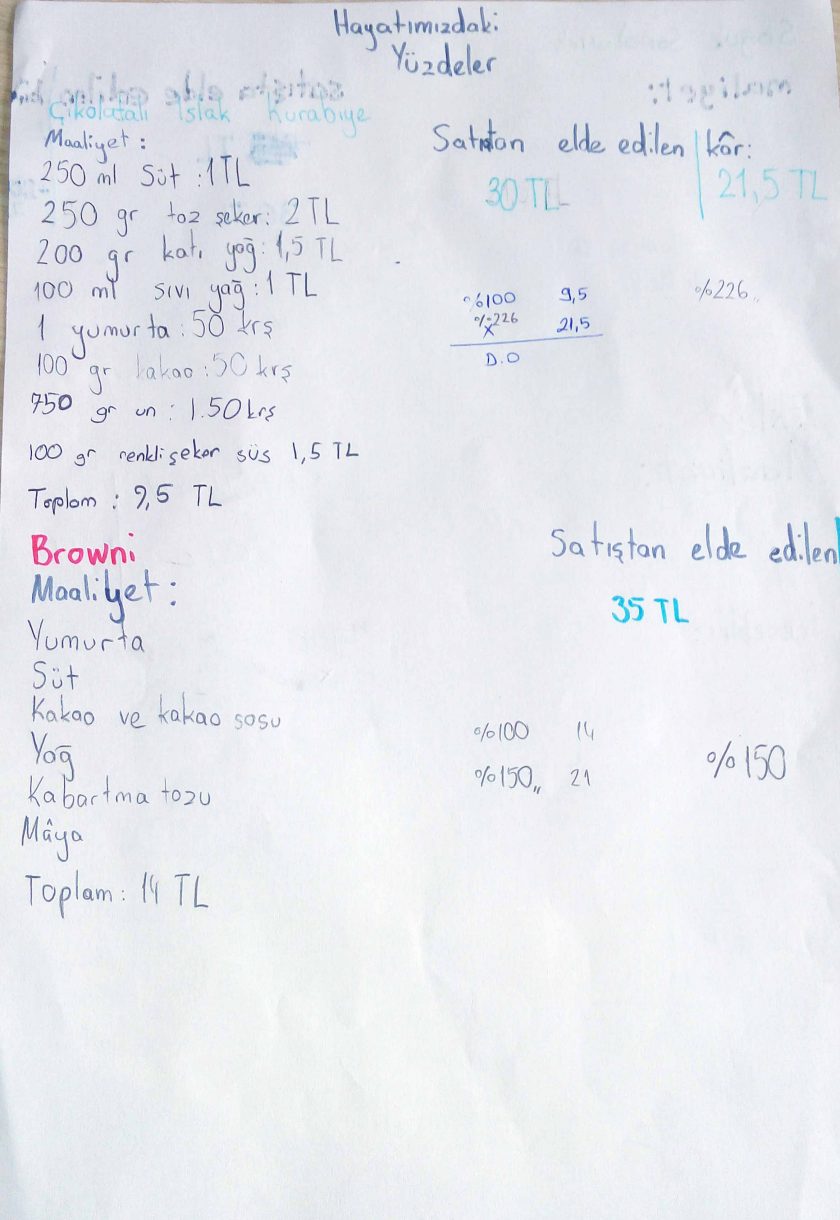 Hayatımızdaki
Yüzdeler
Çikolatalı Islak Kurabiye
Maaliyet :
250 ml Süt : 1 TL
250 gr toz şeker: 2 TL
200 gr katı yağ: 1,5 TL
100 ml sıvı yağ: 1 TL
1 yumurta : 50 krş
100 gr kakao : 50 krş
750 gr un : 1.50 krş
100 gr renkli şeker süs 1,5 TL
Toplam : 9,5 TL
Satıştan elde edilen
30 TL
kâr:
21,5 TL
%100 9,5
%226 21,5
x
D.O
%226
Browni
Maaliyet :
Yumurta
Süt
Kakao ve kakao sosu
Yağ
Kabartma tozu
Mâya
Toplam : 14 TL
Satıştan elde edilen
35 TL
%100 14
%150 21
%150